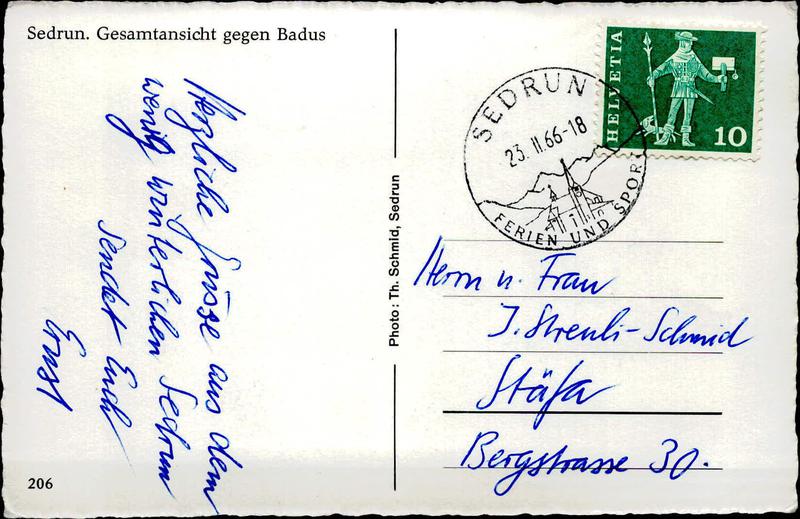 Sedrun. Gesamtansicht gegen Badus
Herzliche Grüsse aus dem
wenig winterlichen Sedrun
sendet Euch
Ernst
206
Photo: Th. Schmid, Sedrun
SEDRUN
23. II. 66-18
FERIEN UND SPORT
HELVETIA
10
Herrn u. Frau
J. Streuli-Schmid
Stäfa
Bergstrasse 30.